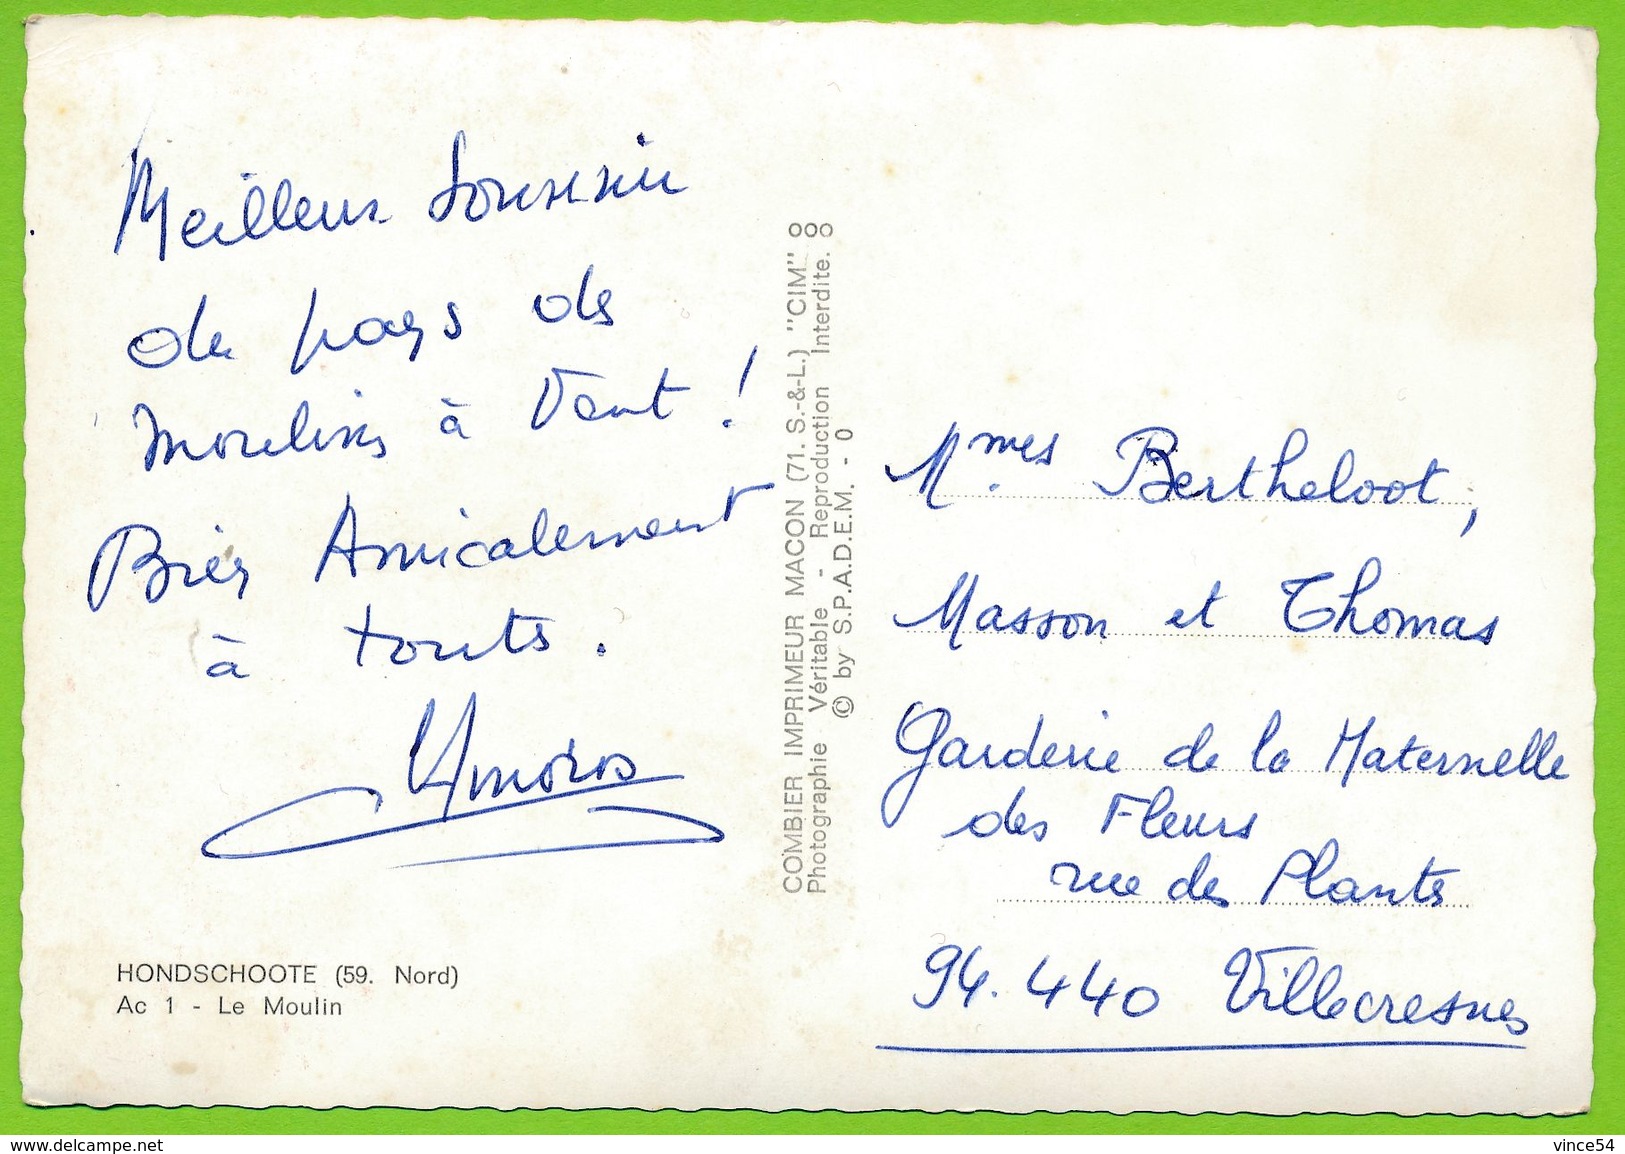 Meilleur Souvenir
du pays des
moulins à Vent !
Bien Amicalement
à touts .
Amoros
HONDSCHOOTE (59. Nord)
Ac 1 - Le Moulin
COMBIER IMPRIMEUR MACON (71. S.-&-L.) "CIM"
Photographie Véritable - Reproduction Interdite.
© by S.P.A.D.E.M. - 0
Mmes Bertheloot,
Masson et Thomas
Garderie de la Maternelle
des Fleurs
rue des Plants
94.440 Villecresnes
www.delcampe.net
vince54